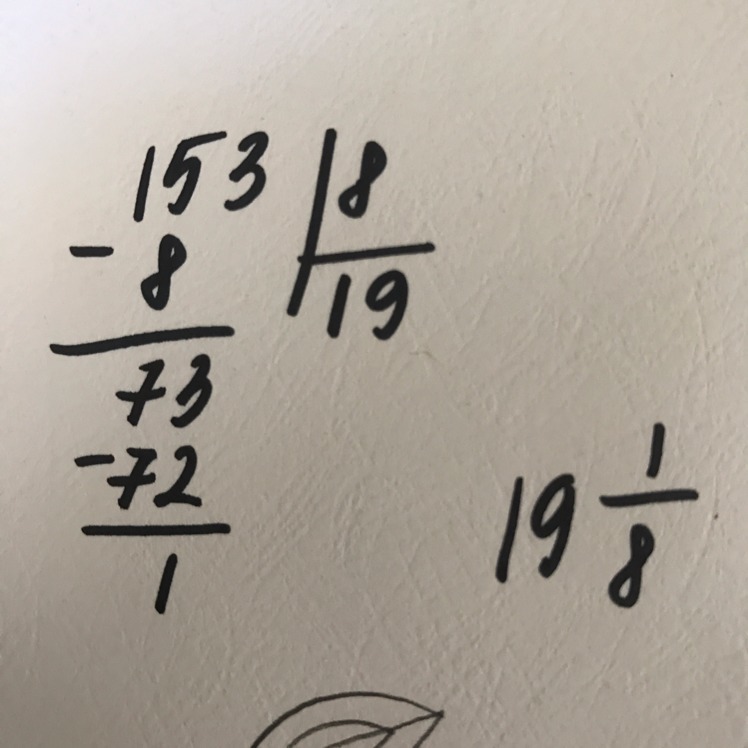 153 | 8
- 8 | 19
73
-72
1
19 1/8